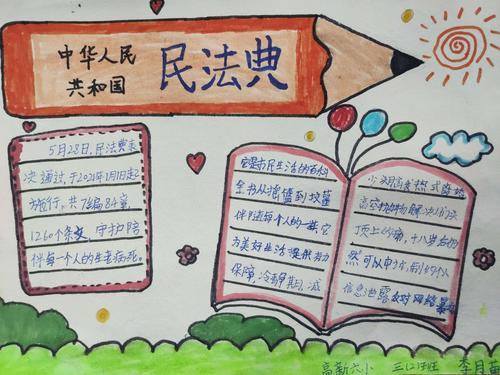 中华人民
共和国
民法典
5月28日,民法典表
决通过,于2021年1月1日起
施行。共7编84章,
1260个条文,守护陪
伴每一个人的生老病死。
它是市民生活的百科
全书从摇篮到坟墓
伴随每个人的一生它
为美好生活提供有力
保障,冷静期、减
高空抛物 解决人们头
顶上的痛,十八岁后仍
然可以申
信息泄露 反对网络暴力
高新六小 三(2)班 李月